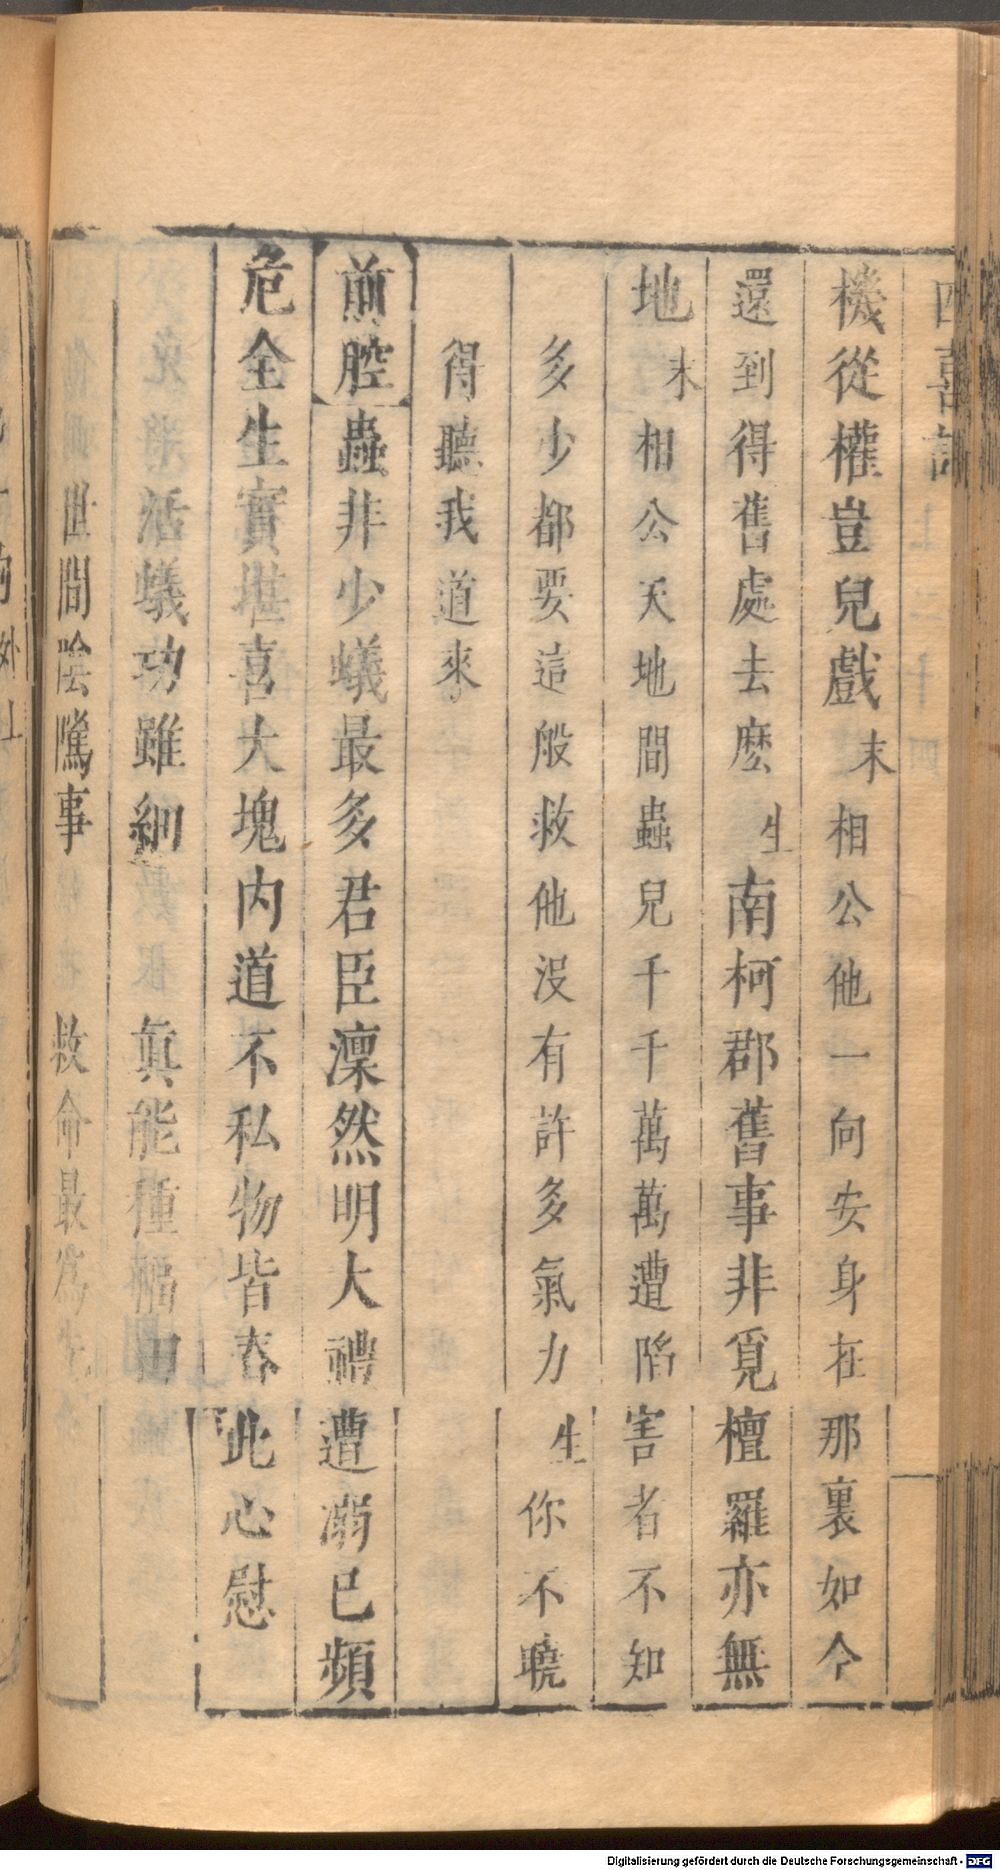 四喜記
機從權豈兒戲末相公他一向安身在那裏如今
還到得舊處去麽生南柯郡舊事非覓檀羅亦無
地末相公天地間蟲兒千千萬萬遭陷害者不知
多少都要這般救他沒有許多氣力生你不曉
得聽我道來
前腔蟲非少蟻最多君臣凜然明大禮遭溺已頻
危全生實堪喜大塊內道不私物皆春此心慰
活蟻功雖細眞能種福田
世間陰騭事救命最爲先
Digitalisierung gefördert durch die Deutsche Forschungsgemeinschaft - DFG